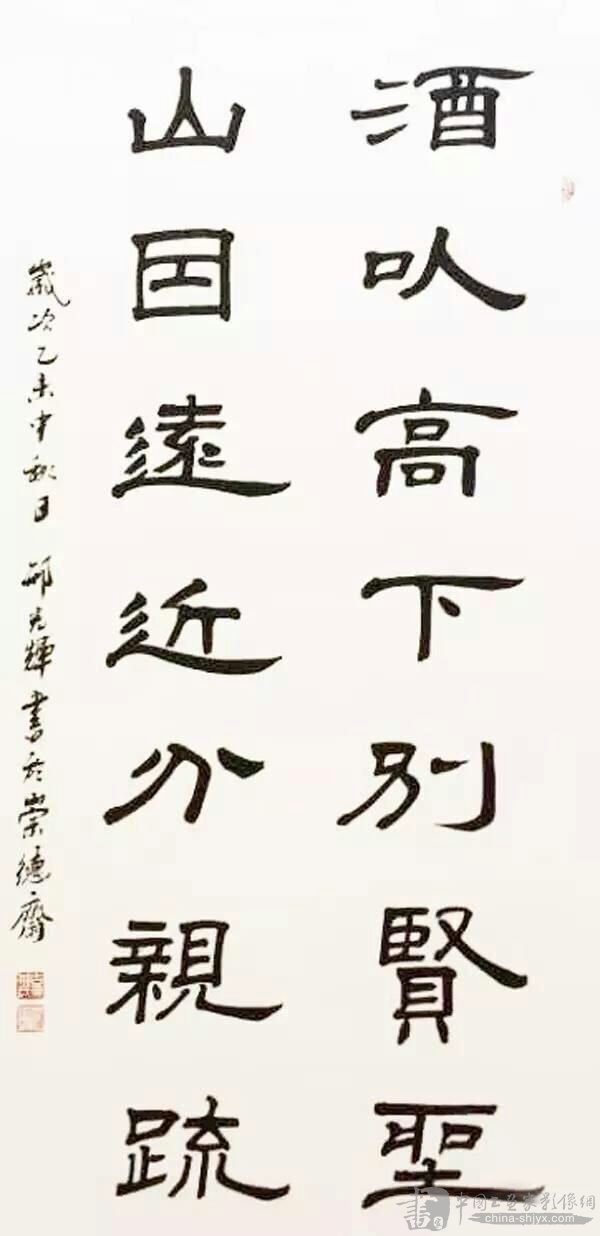 酒以高下別賢聖
山囙遠近分親疏
歲次乙未中秋日 光輝書於崇德齋
書 中国书画家影像網
china-shjyx.com